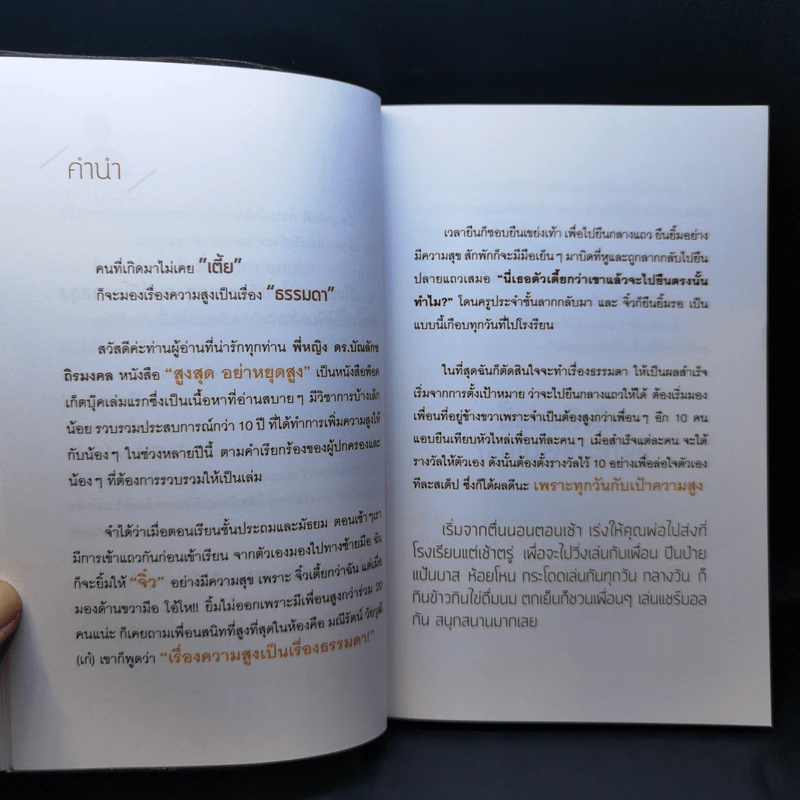 คำนำ
คนที่เกิดมาไม่เคย "เตี้ย"
ก็จะมองเรื่องความสูงเป็นเรื่อง "ธรรมดา"
สวัสดีค่ะท่านผู้อ่านที่น่ารักทุกท่าน พี่หญิง ดร.บัณลักข
ถิรมงคล หนังสือ "สูงสุด อย่าหยุดสูง" เป็นหนังสือพ็อค
เก็ตบุ๊คเล่มแรกซึ่งเป็นเนื้อหาที่อ่านสบายๆ มีวิชาการบ้างเล็ก
น้อย รวบรวมประสบการณ์กว่า 10 ปี ที่ได้ทำการเพิ่มความสูงให้
กับน้องๆ ในช่วงหลายปีนี้ ตามคำเรียกร้องของผู้ปกครองและ
น้องๆ ที่ต้องการรวบรวมให้เป็นเล่ม
จำได้ว่าเมื่อตอนเรียนชั้นประถมและมัธยม ตอนเช้าๆเรา
มีการเข้าแถวกันก่อนเข้าเรียน จากตัวเองมองไปทางซ้ายมือ ฉัน
ก็จะยิ้มให้ "จิ๋ว" อย่างมีความสุข เพราะ จิ๋วเตี้ยกว่าฉัน แต่เมื่อ
มองด้านขวามือ โอ้โห!! ยิ้มไม่ออกเพราะมีเพื่อนสูงกว่าร่วม 20
คนแน่ะ ก็เคยถามเพื่อนสนิทที่สูงที่สุดในห้องคือ มณีรัตน์ วัยวุฒิ
(เก๋) เขาก็พูดว่า "เรื่องความสูงเป็นเรื่องธรรมดา!"
เวลายืนก็ชอบยืนเขย่งเท้า เพื่อไปยืนกลางแถว ยืนยิ้มอย่าง
มีความสุข สักพักก็จะมีมือเย็นๆ มาบิดที่หูและถูกลากกลับไปยืน
ปลายแถวเสมอ "นี่เธอตัวเตี้ยกว่าเขาแล้วจะไปยืนตรงนั้น
ทำไม?" โดนครูประจำชั้นลากกลับมา และ จิ๋วก็ยืนยิ้มรอ เป็น
แบบนี้เกือบทุกวันที่ไปโรงเรียน
ในที่สุดฉันก็ตัดสินใจจะทำเรื่องธรรมดา ให้เป็นผลสำเร็จ
เริ่มจากการตั้งเป้าหมาย ว่าจะไปยืนกลางแถวให้ได้ ต้องเริ่มมอง
เพื่อนที่อยู่ข้างขวาเพราะจำเป็นต้องสูงกว่าเพื่อนๆ อีก 10 คน
แอบยืนเทียบหัวไหล่เพื่อนทีละคนๆ เมื่อสำเร็จแต่ละคน จะได้
รางวัลให้ตัวเอง ดังนั้นต้องตั้งรางวัลไว้ 10 อย่างเพื่อล่อใจตัวเอง
ทีละสเต็ป ซึ่งก็ได้ผลดีนะ เพราะทุกวันกับเป้าความสูง
เริ่มจากตื่นนอนตอนเช้า เร่งให้คุณพ่อไปส่งที่
โรงเรียนแต่เช้าตรู่ เพื่อจะไปวิ่งเล่นกับเพื่อน ปีนป่าย
แป้นบาส ห้อยโหน กระโดดเล่นกันทุกวัน กลางวัน ก็
กินข้าวกินไข่ดื่มนม ตกเย็นก็ชวนเพื่อนๆ เล่นแชร์บอล
กัน สนุกสนานมากเลย